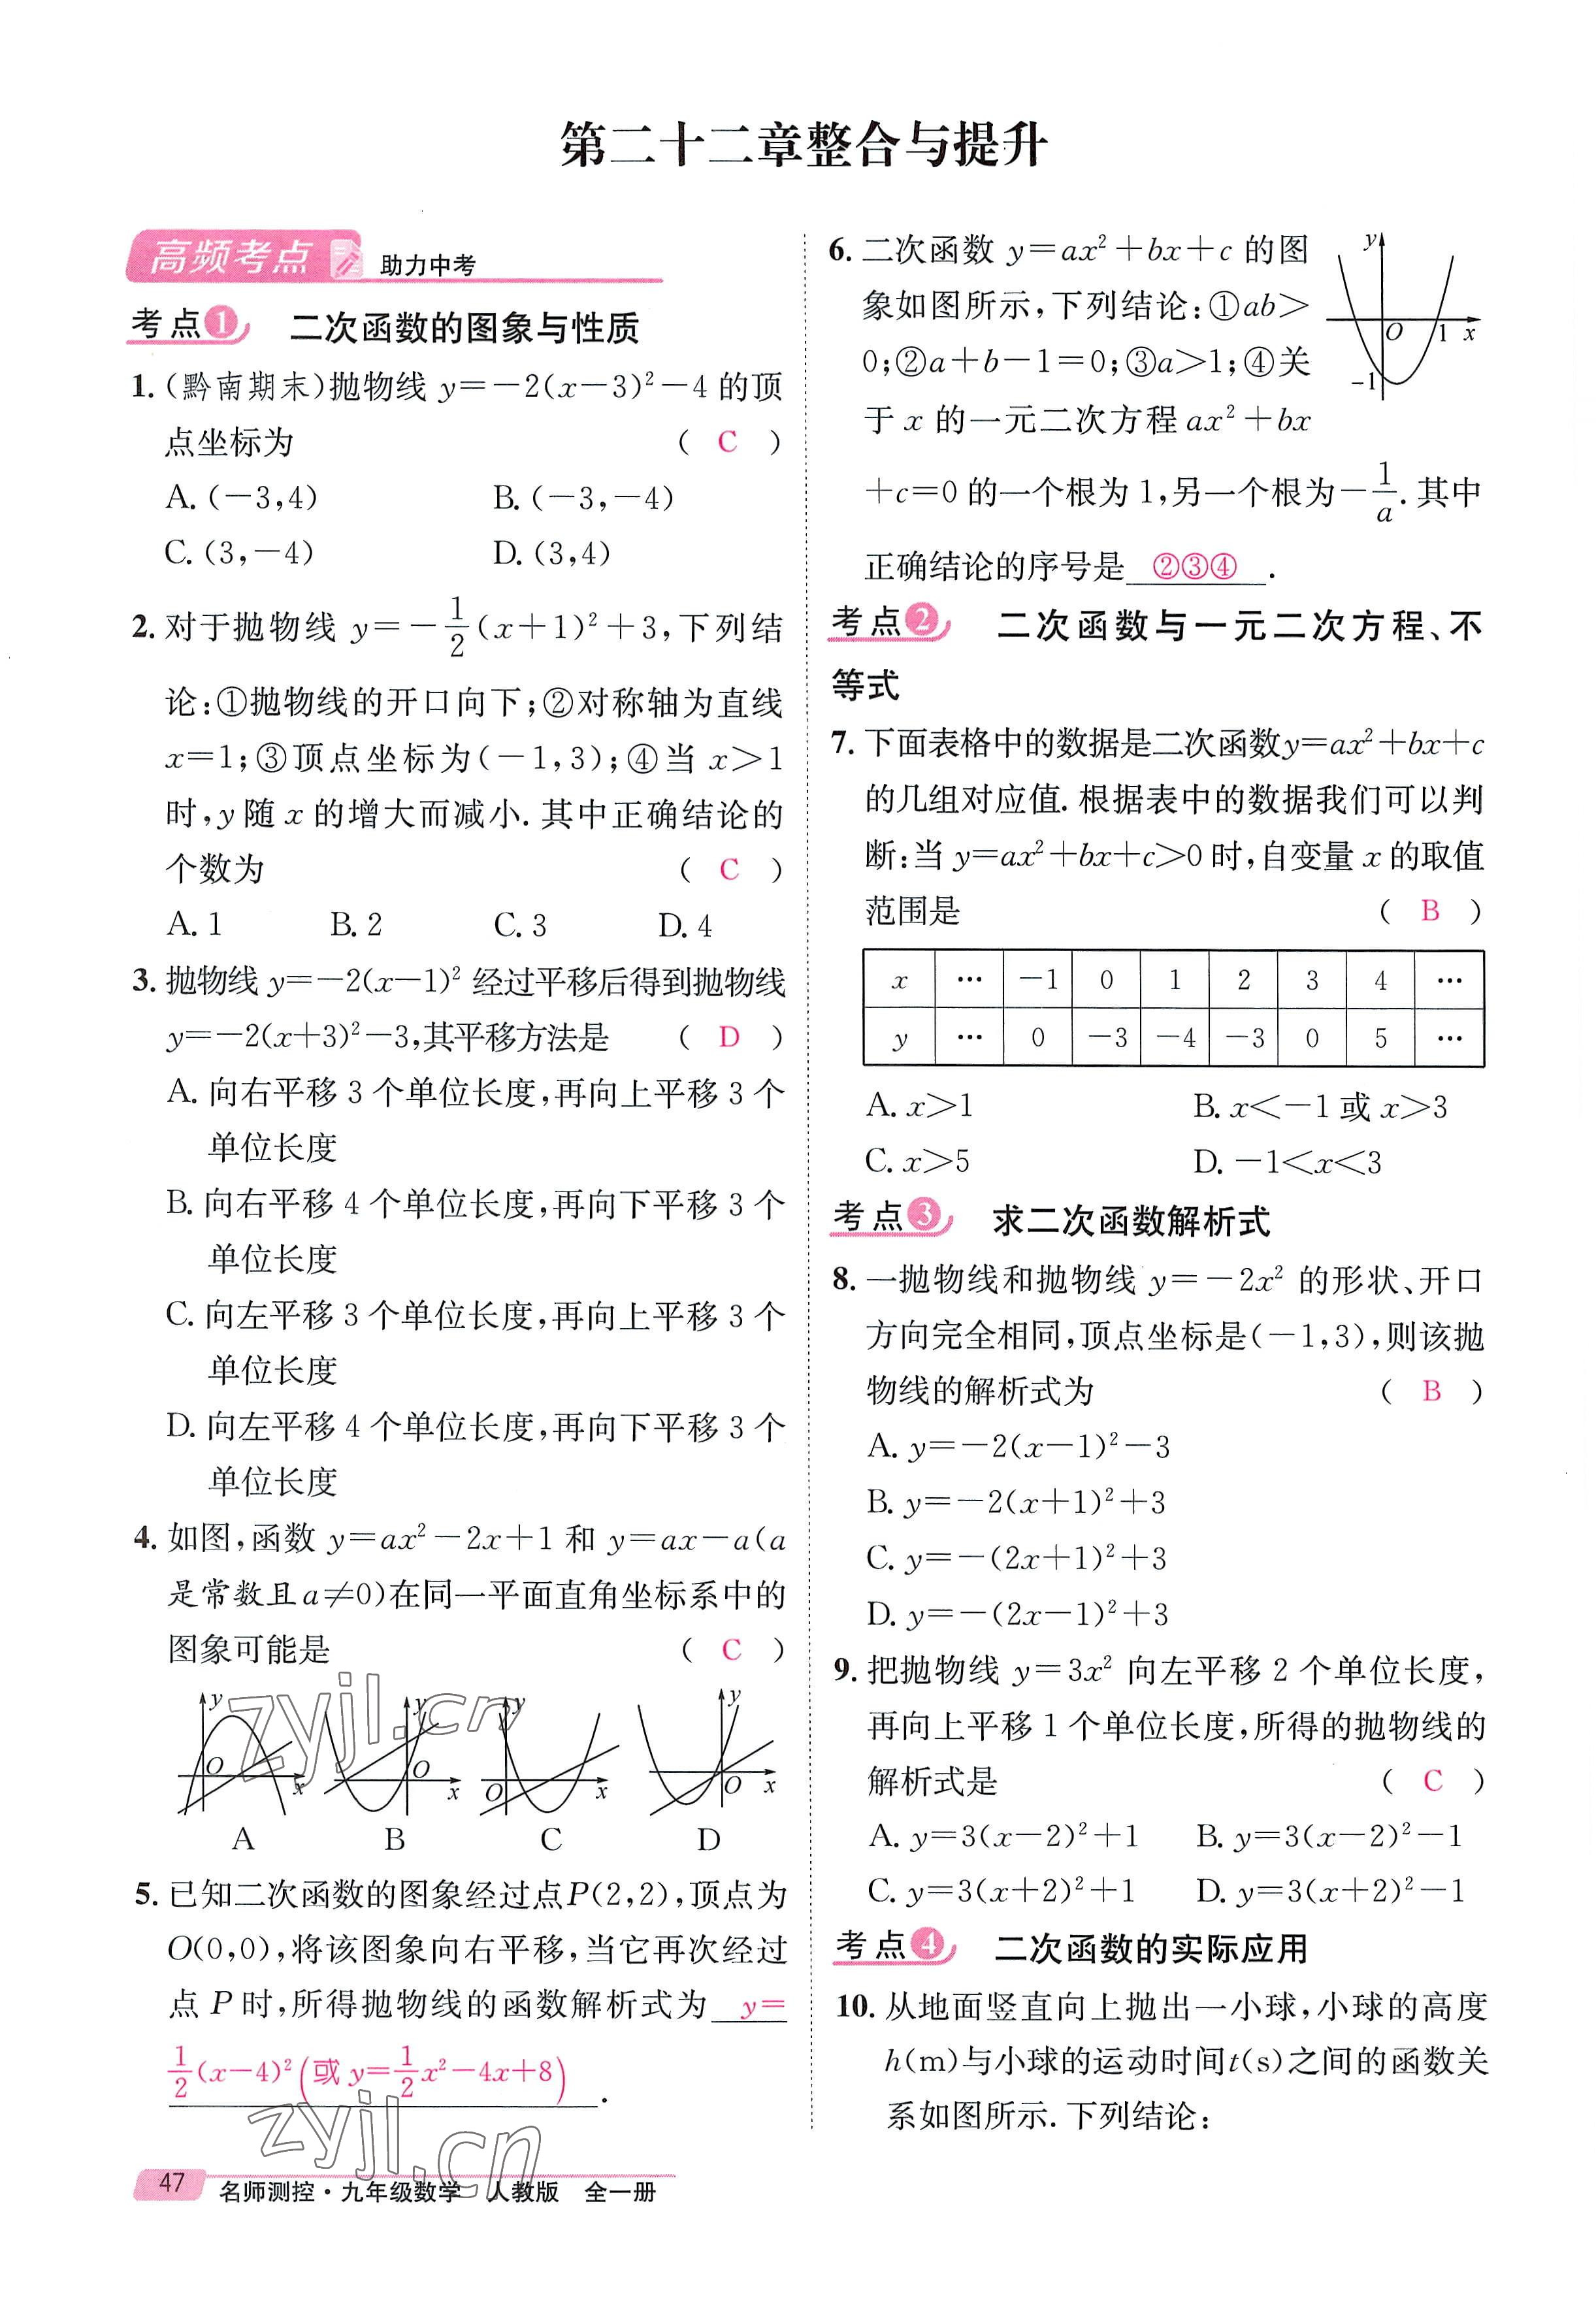 第二十二章整合与提升
高频考点 助力中考
考点1 二次函数的图象与性质
1.(黔南期末)抛物线 y=-2(x-3)²-4 的顶
点坐标为 ( C )
A. (-3,4) B. (-3,-4)
C. (3,-4) D. (3,4)
2. 对于抛物线 y=-1/2(x+1)²+3,下列结
论:①抛物线的开口向下;②对称轴为直线
x=1;③顶点坐标为(-1,3);④当 x>1
时,y随 x 的增大而减小. 其中正确结论的
个数为 ( C )
A. 1 B. 2 C. 3 D. 4
3. 抛物线 y=-2(x-1)² 经过平移后得到抛物线
y=-2(x+3)²-3,其平移方法是 ( D )
A. 向右平移 3 个单位长度,再向上平移 3 个
单位长度
B. 向右平移 4 个单位长度,再向下平移 3 个
单位长度
C. 向左平移 3 个单位长度,再向上平移 3 个
单位长度
D. 向左平移 4 个单位长度,再向下平移 3 个
单位长度
4. 如图,函数 y=ax²-2x+1 和 y=ax-a(a
是常数且a≠0)在同一平面直角坐标系中的
图象可能是 ( C )
y O x y O x y O x y O x
A B C D
5. 已知二次函数的图象经过点P(2,2),顶点为
O(0,0),将该图象向右平移,当它再次经过
点 P 时,所得抛物线的函数解析式为 y=
1/2(x-4)²(或 y=1/2x²-4x+8).
zyjl.cn
zyjl.cn
47 名师测控·九年级数学 人教版 全一册
6. 二次函数 y=ax²+bx+c 的图
象如图所示,下列结论:①ab>
0;②a+b-1=0;③a>1;④关
于 x 的一元二次方程 ax²+bx
+c=0 的一个根为 1,另一个根为-1/a. 其中
正确结论的序号是 ②③④ .
y O 1 x -1
考点2 二次函数与一元二次方程、不
等式
7. 下面表格中的数据是二次函数y=ax²+bx+c
的几组对应值. 根据表中的数据我们可以判
断:当 y=ax²+bx+c>0 时,自变量 x 的取值
范围是 ( B )
x … -1 0 1 2 3 4 …
y … 0 -3 -4 -3 0 5 …
A. x>1 B. x<-1 或 x>3
C. x>5 D. -1<x<3
考点3 求二次函数解析式
8. 一抛物线和抛物线 y=-2x² 的形状、开口
方向完全相同,顶点坐标是(-1,3),则该抛
物线的解析式为 ( B )
A. y=-2(x-1)²-3
B. y=-2(x+1)²+3
C. y=-(2x+1)²+3
D. y=-(2x-1)²+3
9. 把抛物线 y=3x² 向左平移 2 个单位长度,
再向上平移 1 个单位长度,所得的抛物线的
解析式是 ( C )
A. y=3(x-2)²+1 B. y=3(x-2)²-1
C. y=3(x+2)²+1 D. y=3(x+2)²-1
考点4 二次函数的实际应用
10. 从地面竖直向上抛出一小球,小球的高度
h(m)与小球的运动时间t(s)之间的函数关
系如图所示. 下列结论: